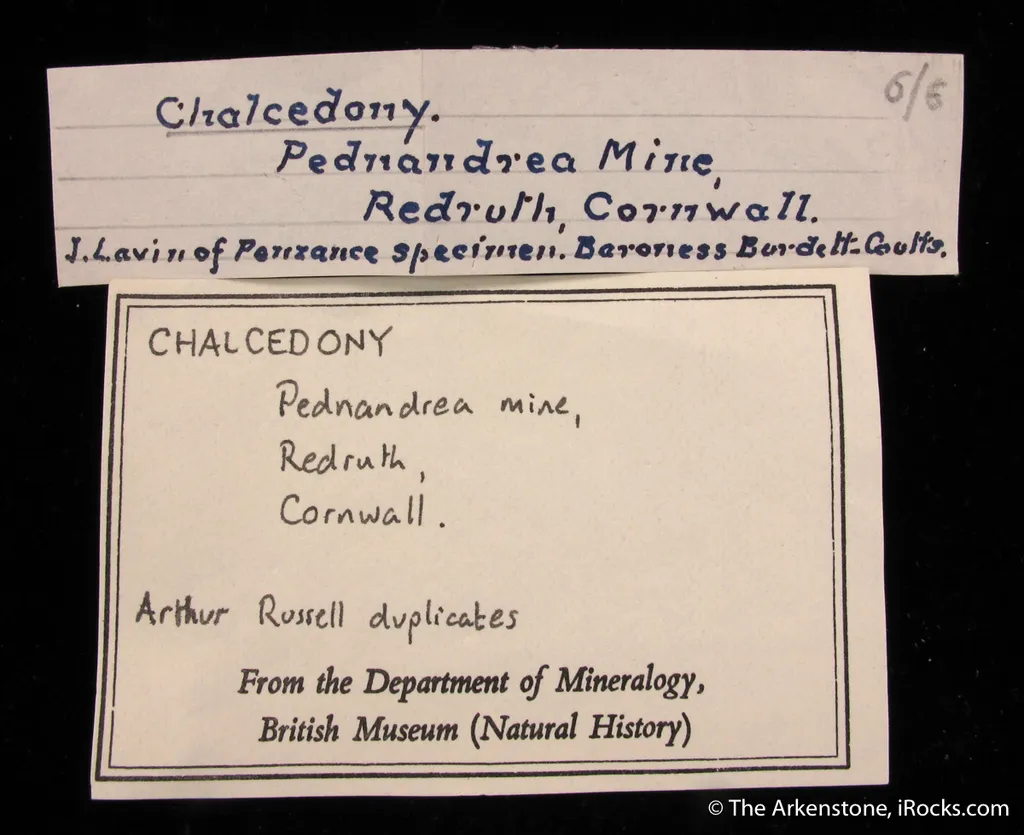 6/6
Chalcedony.
Pednandrea Mine,
Redruth, Cornwall.
J. Lavin of Penzance specimen. Baroness Burdett-Coutts.
CHALCEDONY
Pednandrea mine,
Redruth,
Cornwall.
Arthur Russell duplicates
From the Department of Mineralogy,
British Museum (Natural History)
© The Arkenstone, iRocks.com